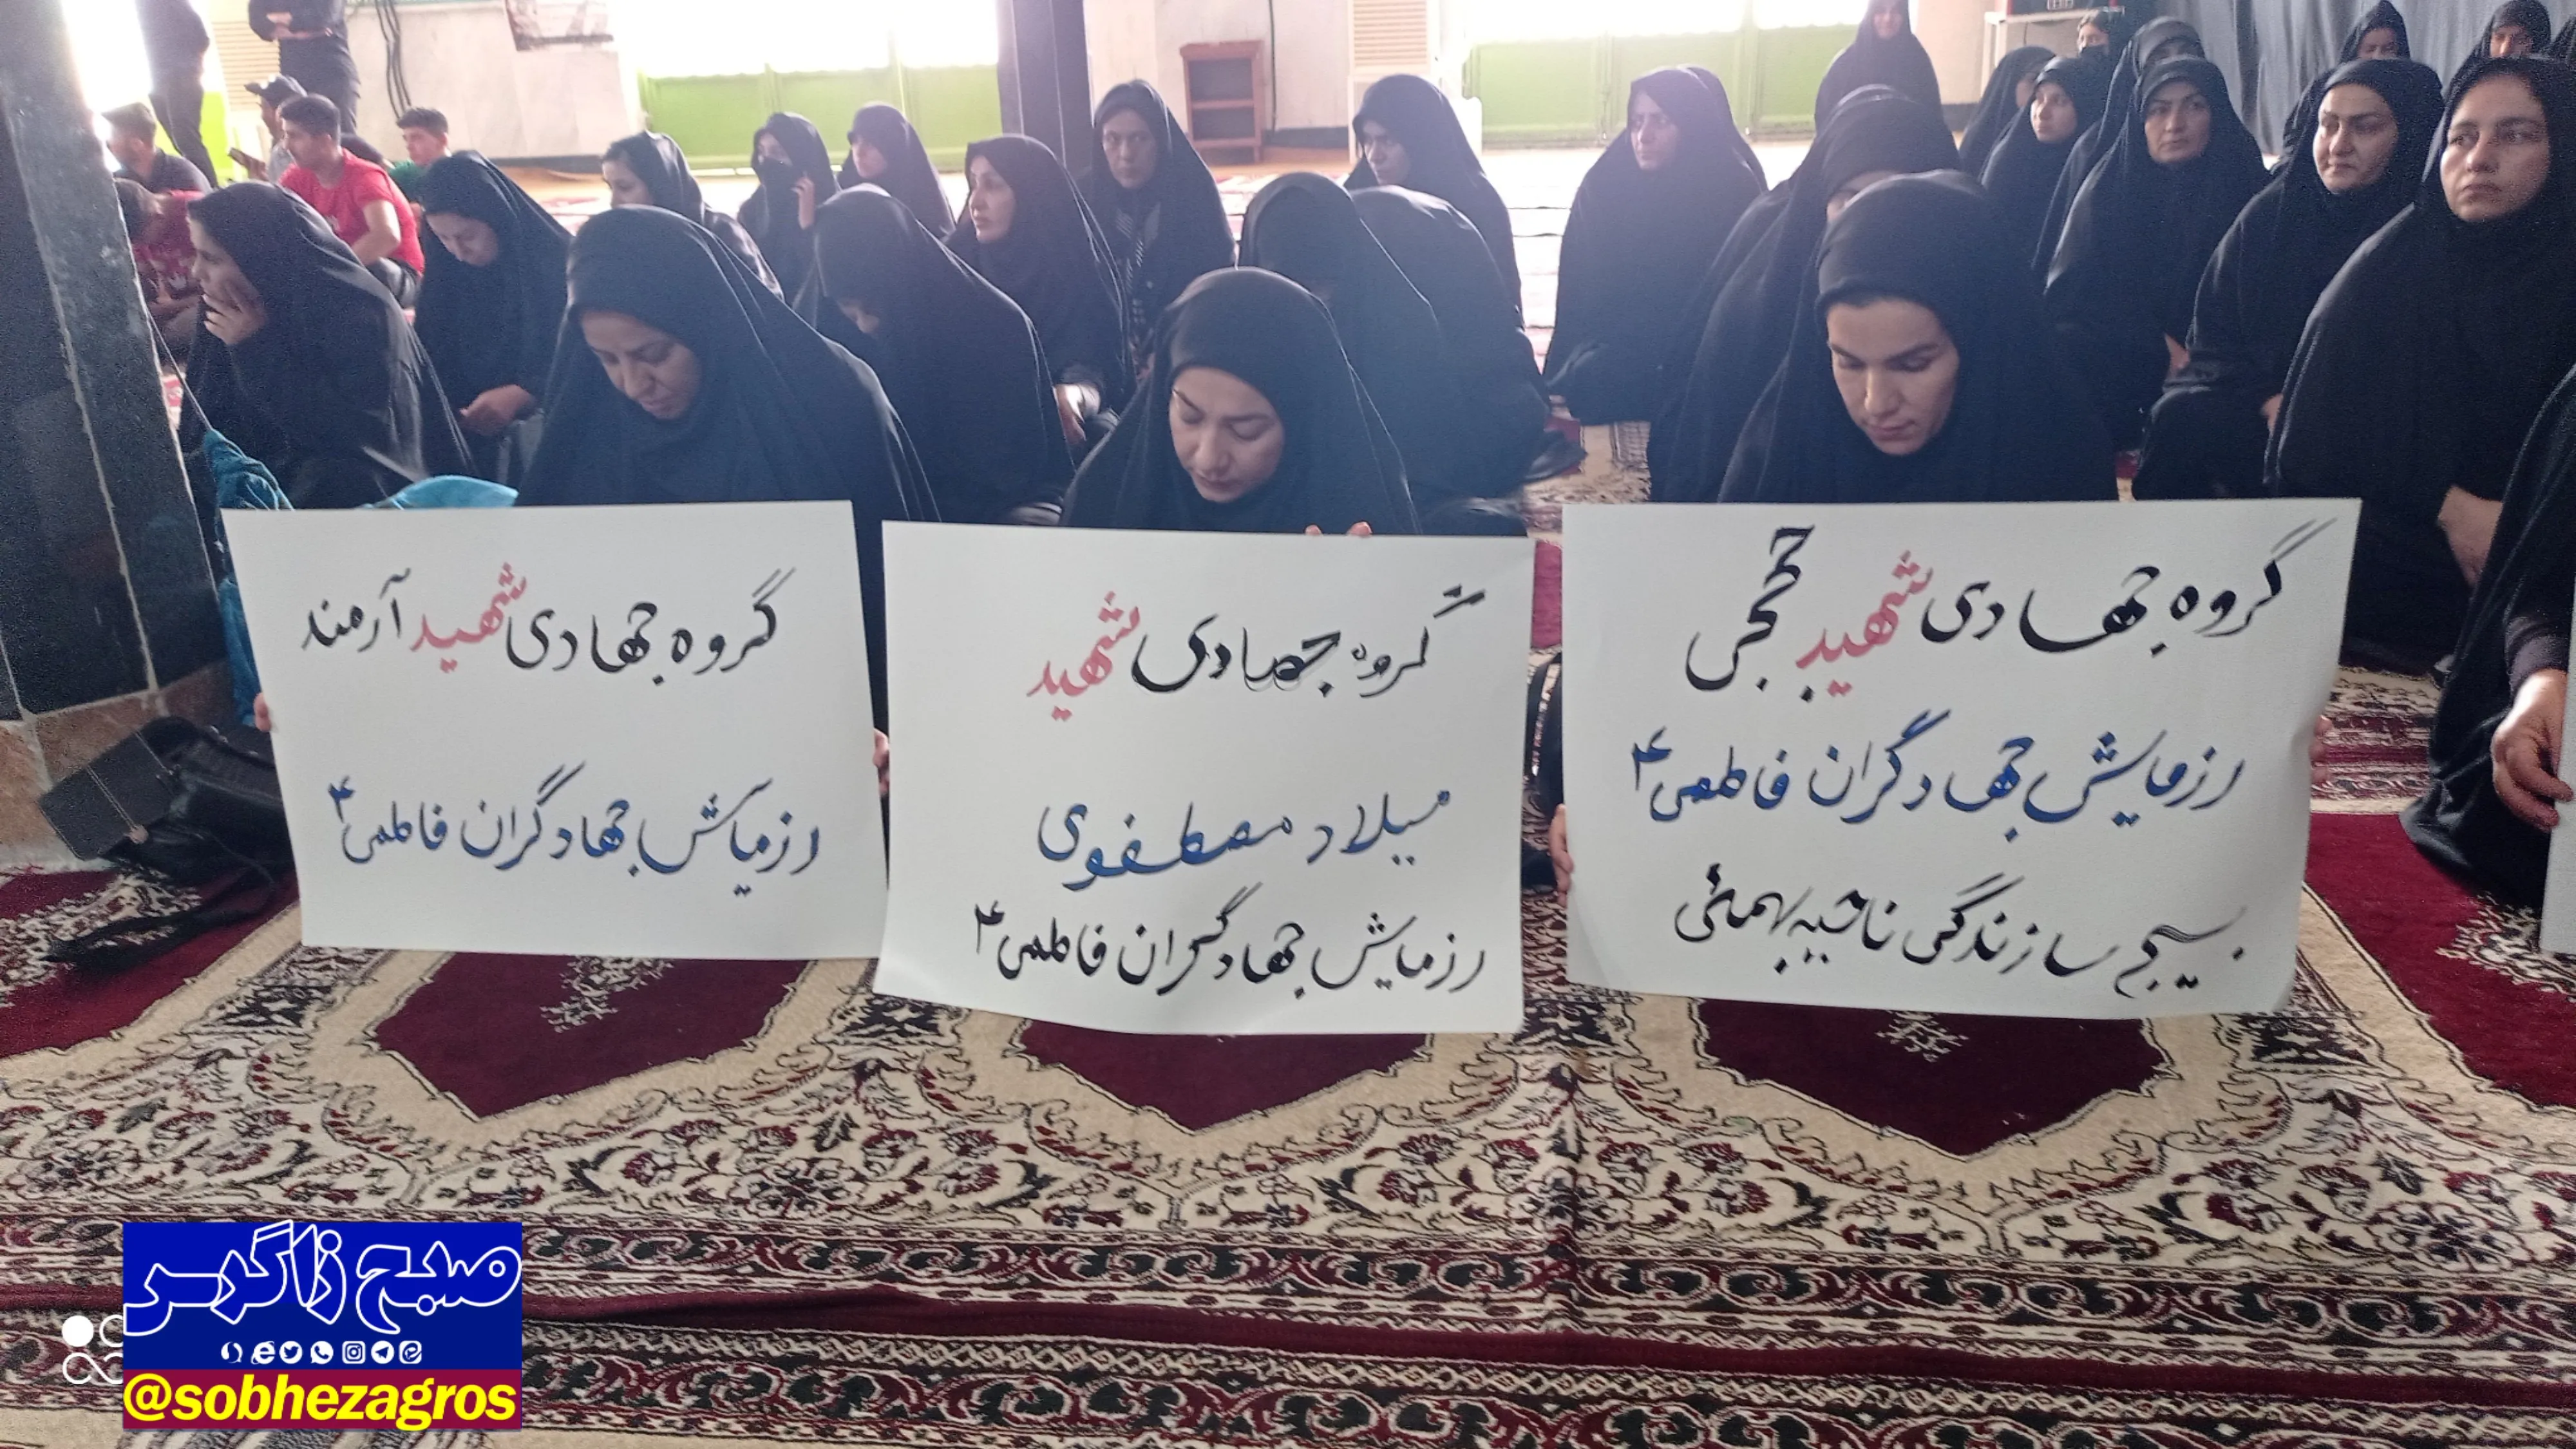 گروه جهادی شهید حججی
رزمایش جهادگران فاطمی ۴
بسیج سازندگی ناحیه بهمئی
گروه جهادی شهید
میلاد مصطفوی
رزمایش جهادگران فاطمی ۴
گروه جهادی شهید آرمند
رزمیایش جهادگران فاطمی ۴
صبح زاگرس
@sobhezagros